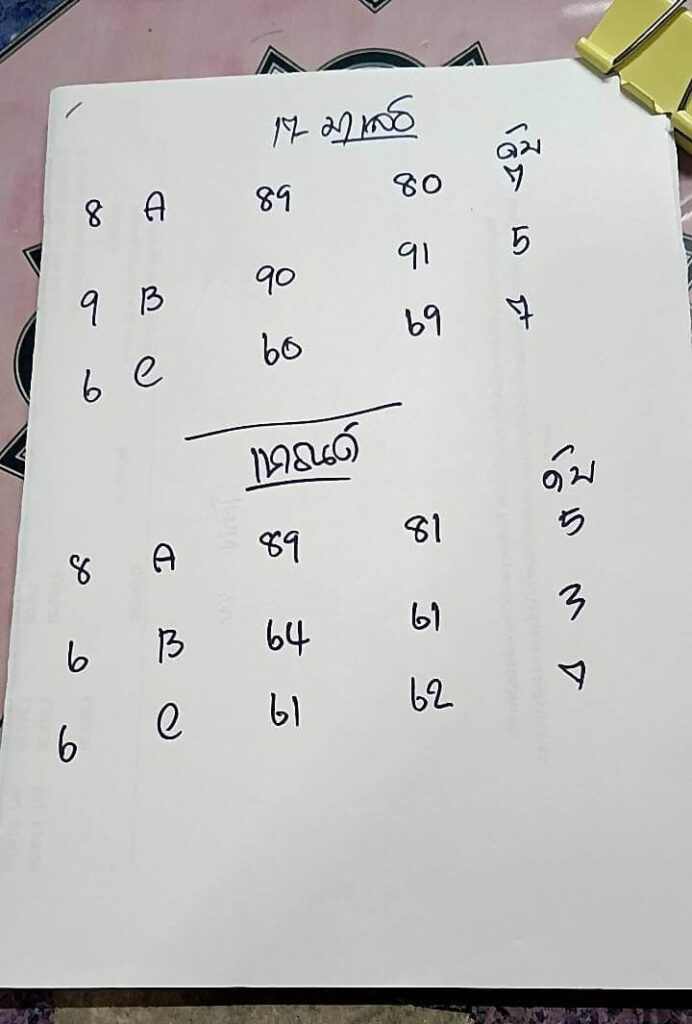 17 มาเลย์
ดับ
8 A 89 80 7
9 B 90 91 5
6 C 60 69 7
แคนด์
ดับ
8 A 89 81 5
6 B 64 61 3
6 C 61 62 7